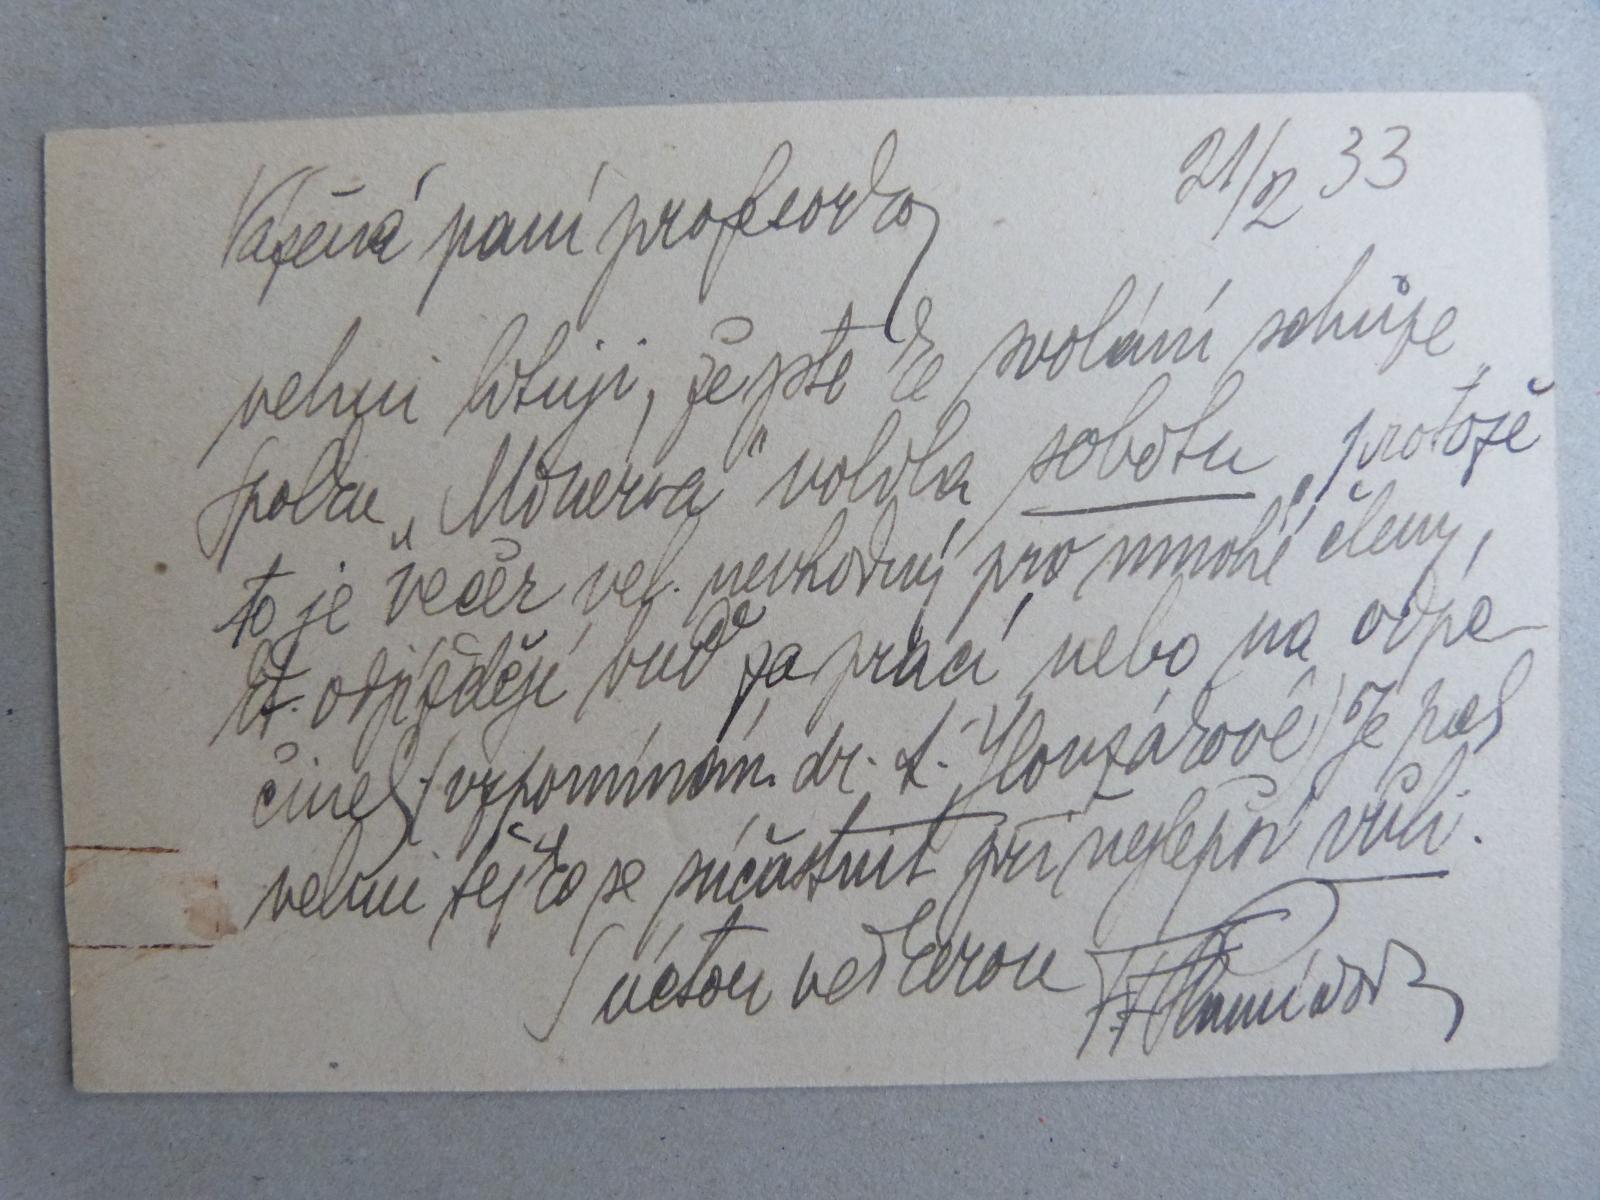 21/2 33
Vážená paní profesorko,
velmi lituji, že jste ke svolání schůze
spolku „Minerva" volila sobotu, protože
to je večer vel. nevhodný pro mnohé členy,
kt. odjíždějí buď za prací nebo na odpo-
činek (vzpomínám dr. A. Honzákové) Je pak
velmi těžko se súčastnit při nejlepší vůli.
S úctou veškerou F. F. Plamínková